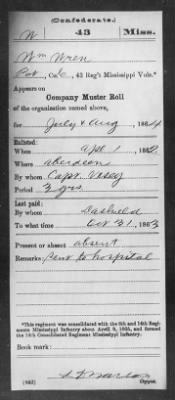 (Confederate.)
W 43 Miss.
Wm Wren
Co. , 43 Reg't Mississippi Vols.*
Appears on
Company Muster Roll
of the organization named above,
for July & Aug, 1864
Enlisted:
When Apl 1, 1862.
Where aberdeen
By whom Capt. Vasey
Period 3 yrs.
Last paid:
By whom Dashield
To what time Oct 31, 1863
Present or absent absent
Remarks: Sent to hospital
*This regiment was consolidated with the 6th and 14th Regiments Mississippi Infantry about April 9, 1865, and formed the 14th Consolidated Regiment Mississippi Infantry.
Book mark:
(642)
Copyist.